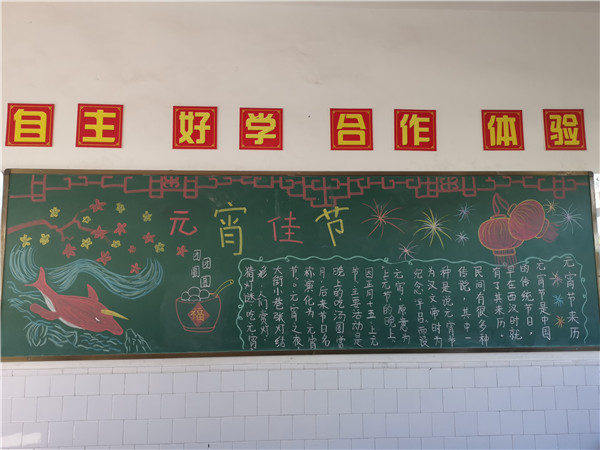 自主 好学 合作 体验
元宵佳节
元宵节来历
元宵节是中国
的传统节日,
早在西汉时就
有了其来历。
民间有很多种
传说,其中一
种是说元宵节
为汉文帝时为
纪念"平吕"而设
元宵,原意为
"上元节的晚上"
因正月十五"上元
节"主要活动是
晚上的吃汤圆赏
月后来节日名
称演化为"元宵
节"。元宵之夜
大街小巷张灯结
彩,人们赏灯
猜灯谜吃元宵
团圆
团圆
福